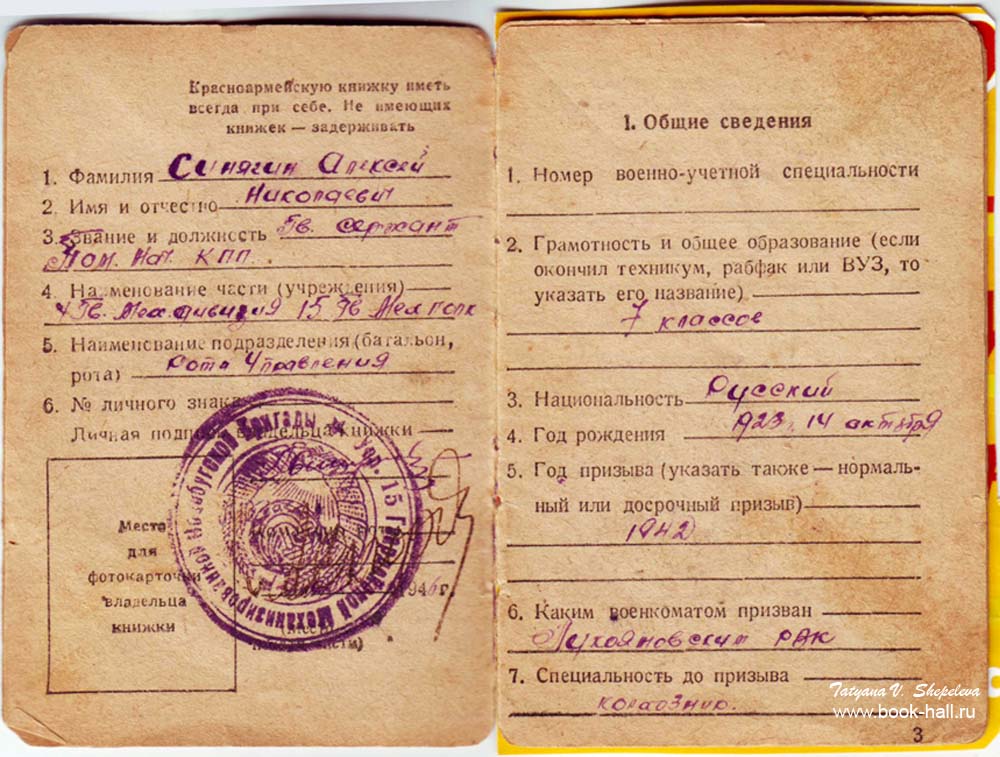 Красноармейскую книжку иметь
всегда при себе. Не имеющих
книжек — задерживать
1. Фамилия Синягин Алексей
2. Имя и отчество Николаевич
3. Звание и должность Гв. сержант
Пом. Нач. КПП.
4. Наименование части (учреждения)
4 Гв. Мех. дивизия 15 Гв Мех полк
5. Наименование подразделения (батальон,
рота) Рота Управления
6. № личного знака
Личная подпись владельца книжки
Место
для
фотокарточки
владельца
книжки
1946 г.
15 Гвардейской Механизированной бригады
I. Общие сведения
1. Номер военно-учетной специальности
2. Грамотность и общее образование (если
окончил техникум, рабфак или ВУЗ, то
указать его название)
7 классов
3. Национальность Русский
4. Год рождения 1923, 14 октября
5. Год призыва (указать также — нормаль-
ный или досрочный призыв)
1942
6. Каким военкоматом призван
Лукояновским РВК
7. Специальность до призыва
колхозник.
3
Tatyana V. Shepeleva
www.book-hall.ru